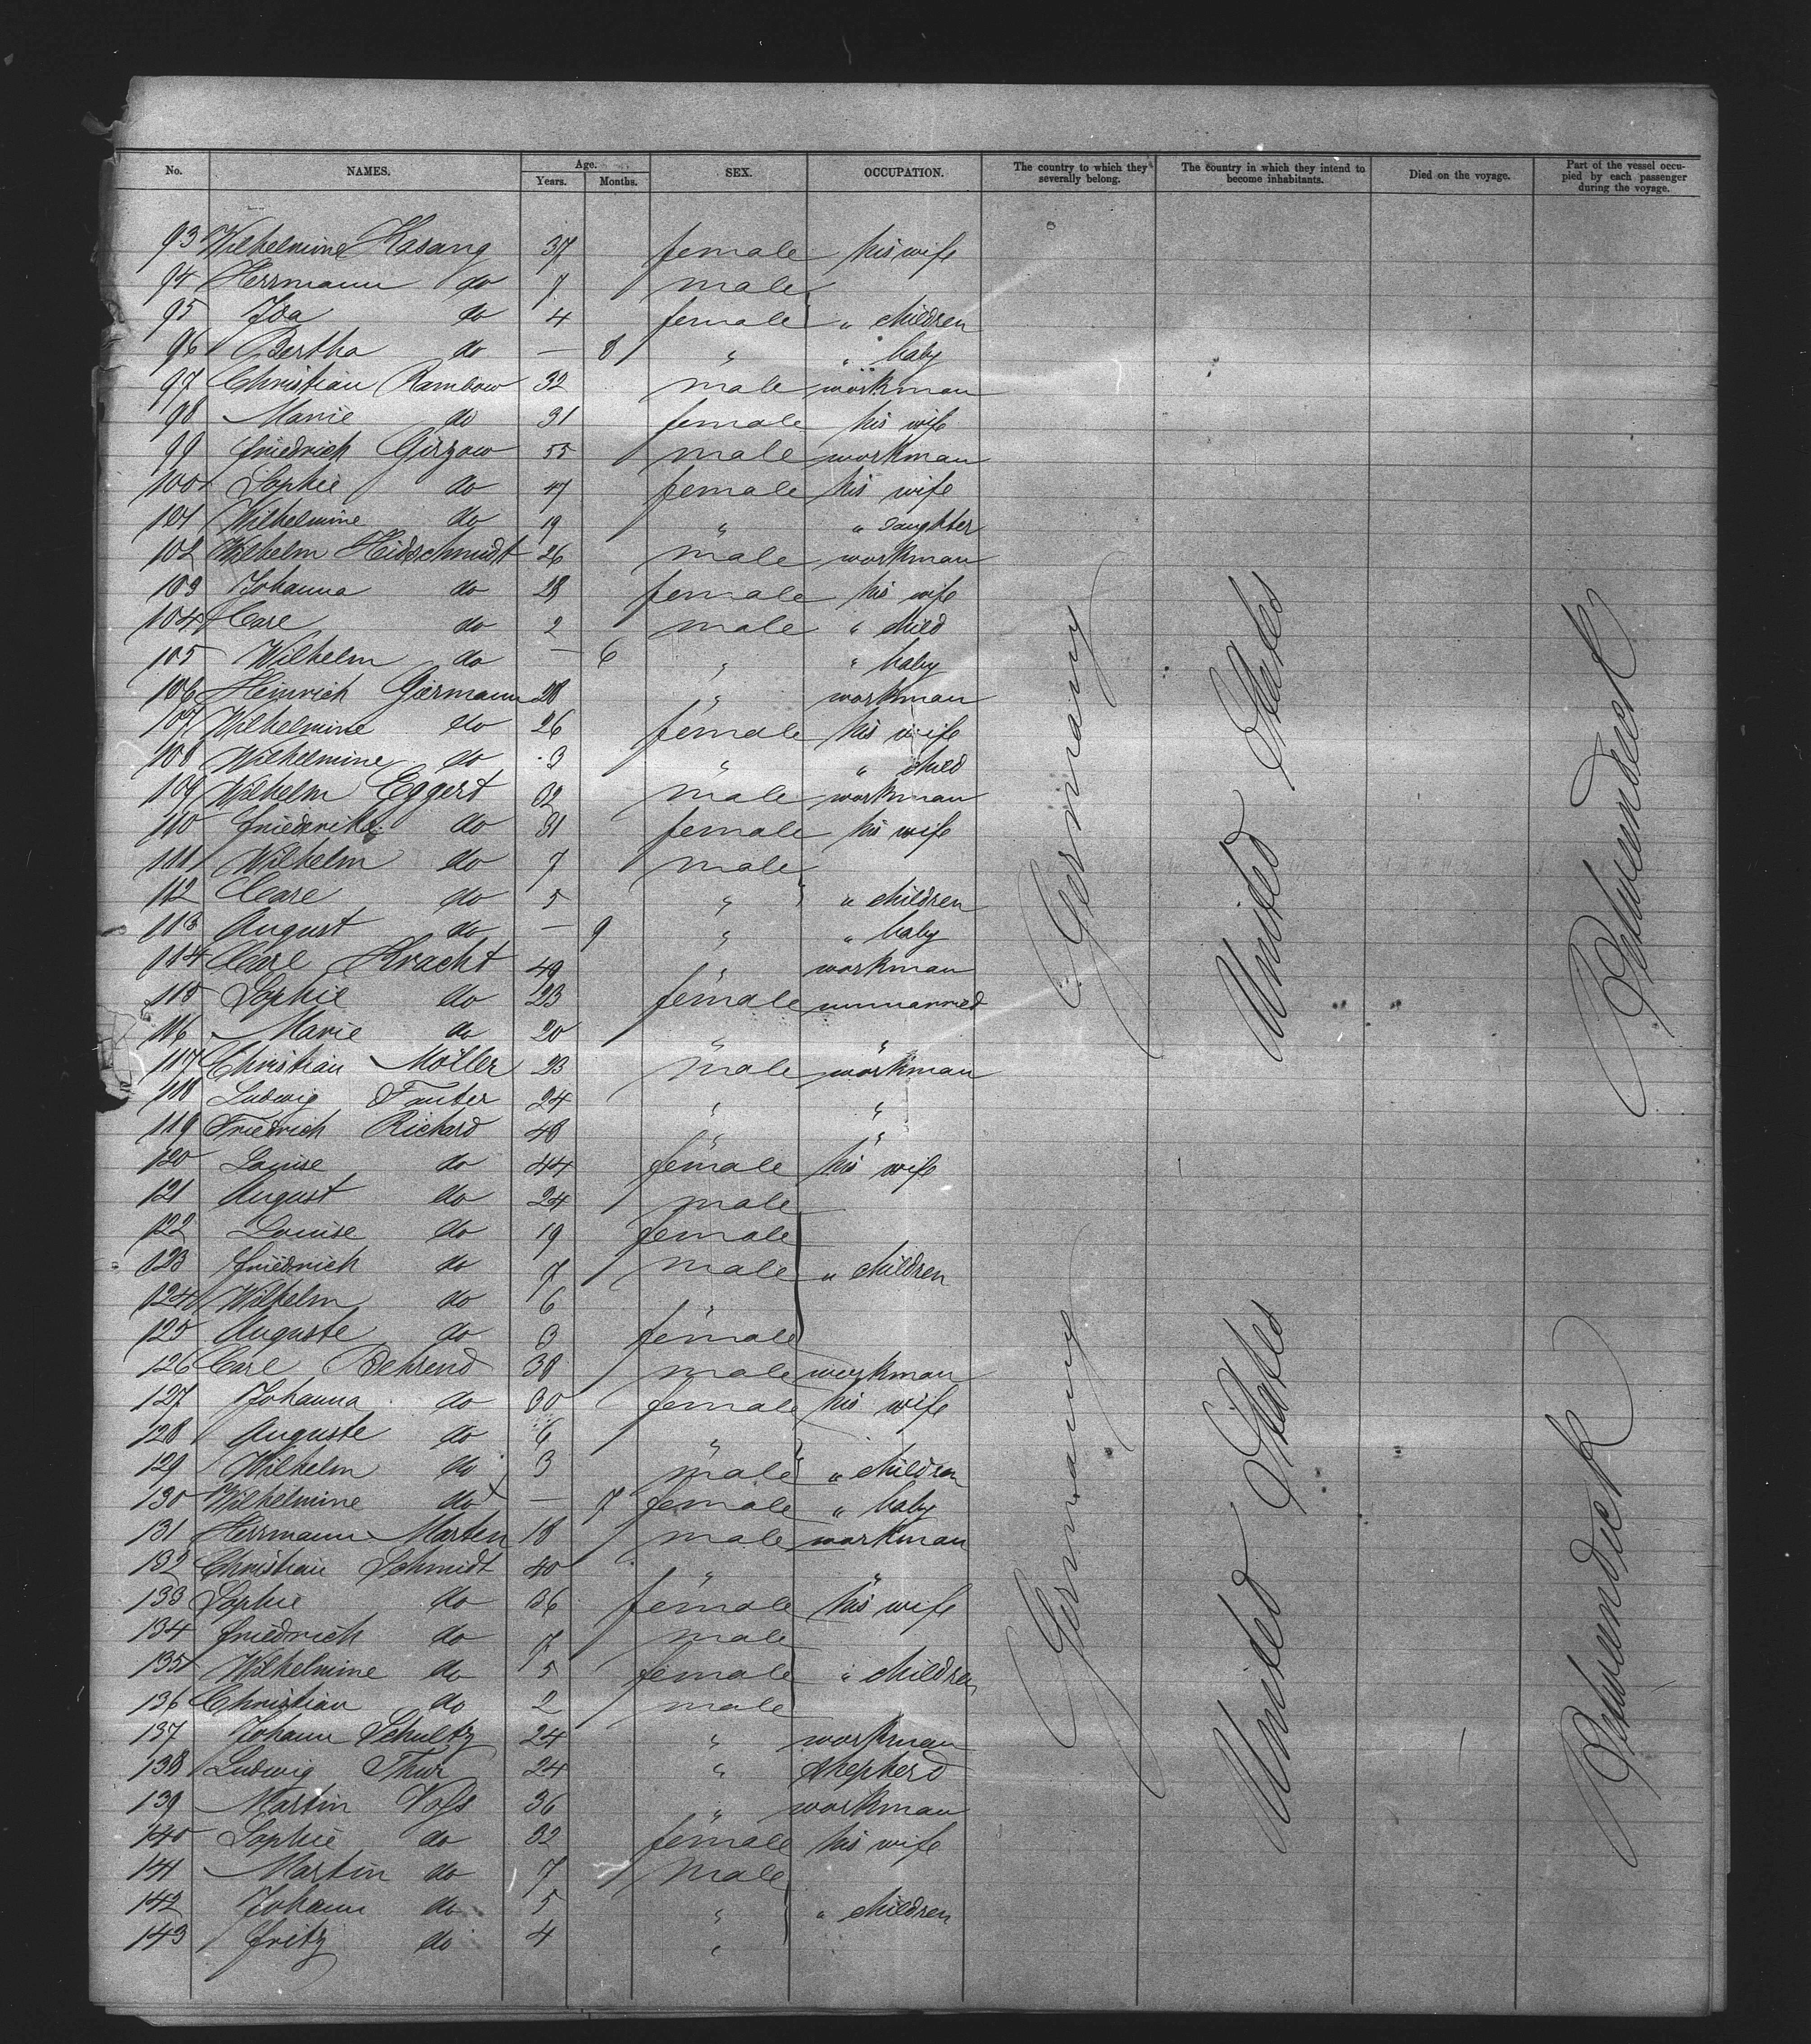 No. NAMES. Age. Years. Months. SEX. OCCUPATION. The country to which they severally belong. The country in which they intend to become inhabitants. Died on the voyage. Part of the vessel occupied by each passenger during the voyage.
93 Wilhelmine Kasang 37 female his wife
94 Herrmann do 7 male
95 Ida do 4 female " children
96 Bertha do — 8 " " baby
97 Christian Rambow 32 male workman
98 Marie do 31 female his wife
99 Friedrich Girzow 55 male workman
100 Sophie do 47 female his wife
101 Wilhelmine do 19 " " daughter
102 Wilhelm Heidschmidt 26 male workman
103 Johanna do 28 female his wife
104 Carl do 2 male " child
105 Wilhelm do — 6 " " baby
106 Heinrich Giermann 28 " workman
107 Wilhelmine do 26 female his wife
108 Wilhelmine do 3 " " child
109 Wilhelm Eggert 32 male workman
110 Friederike do 31 female his wife
111 Wilhelm do 7 male
112 Carl do 5 " " children
113 August do — 9 " " baby
114 Carl Kracht 49 " workman
115 Sophie do 23 female unmarried
116 Marie do 20 " "
117 Christian Möller 23 male workman
118 Ludwig Fauter 24 " "
119 Friedrich Richard 48 " "
120 Louise do 44 female his wife
121 August do 24 male
122 Louise do 19 female
123 Friedrich do 7 male " children
124 Wilhelm do 6 "
125 Auguste do 3 female
126 Carl Behrend 38 male workman
127 Johanna do 30 female his wife
128 Auguste do 6 "
129 Wilhelm do 3 male " children
130 Wilhelmine do — 7 female " baby
131 Herrmann Marten 18 male workman
132 Christian Schmidt 40 " "
133 Sophie do 36 female his wife
134 Friedrich do 7 male
135 Wilhelmine do 5 female " children
136 Christian do 2 male
137 Johann Schultz 24 " workman
138 Ludwig Thur 24 " shepherd
139 Martin Voss 36 " workman
140 Sophie do 32 female his wife
141 Martin do 7 male
142 Johann do 5 " " children
143 Fritz do 4 "
Germany
United States
Betweendeck
Germany
United States
Betweendeck